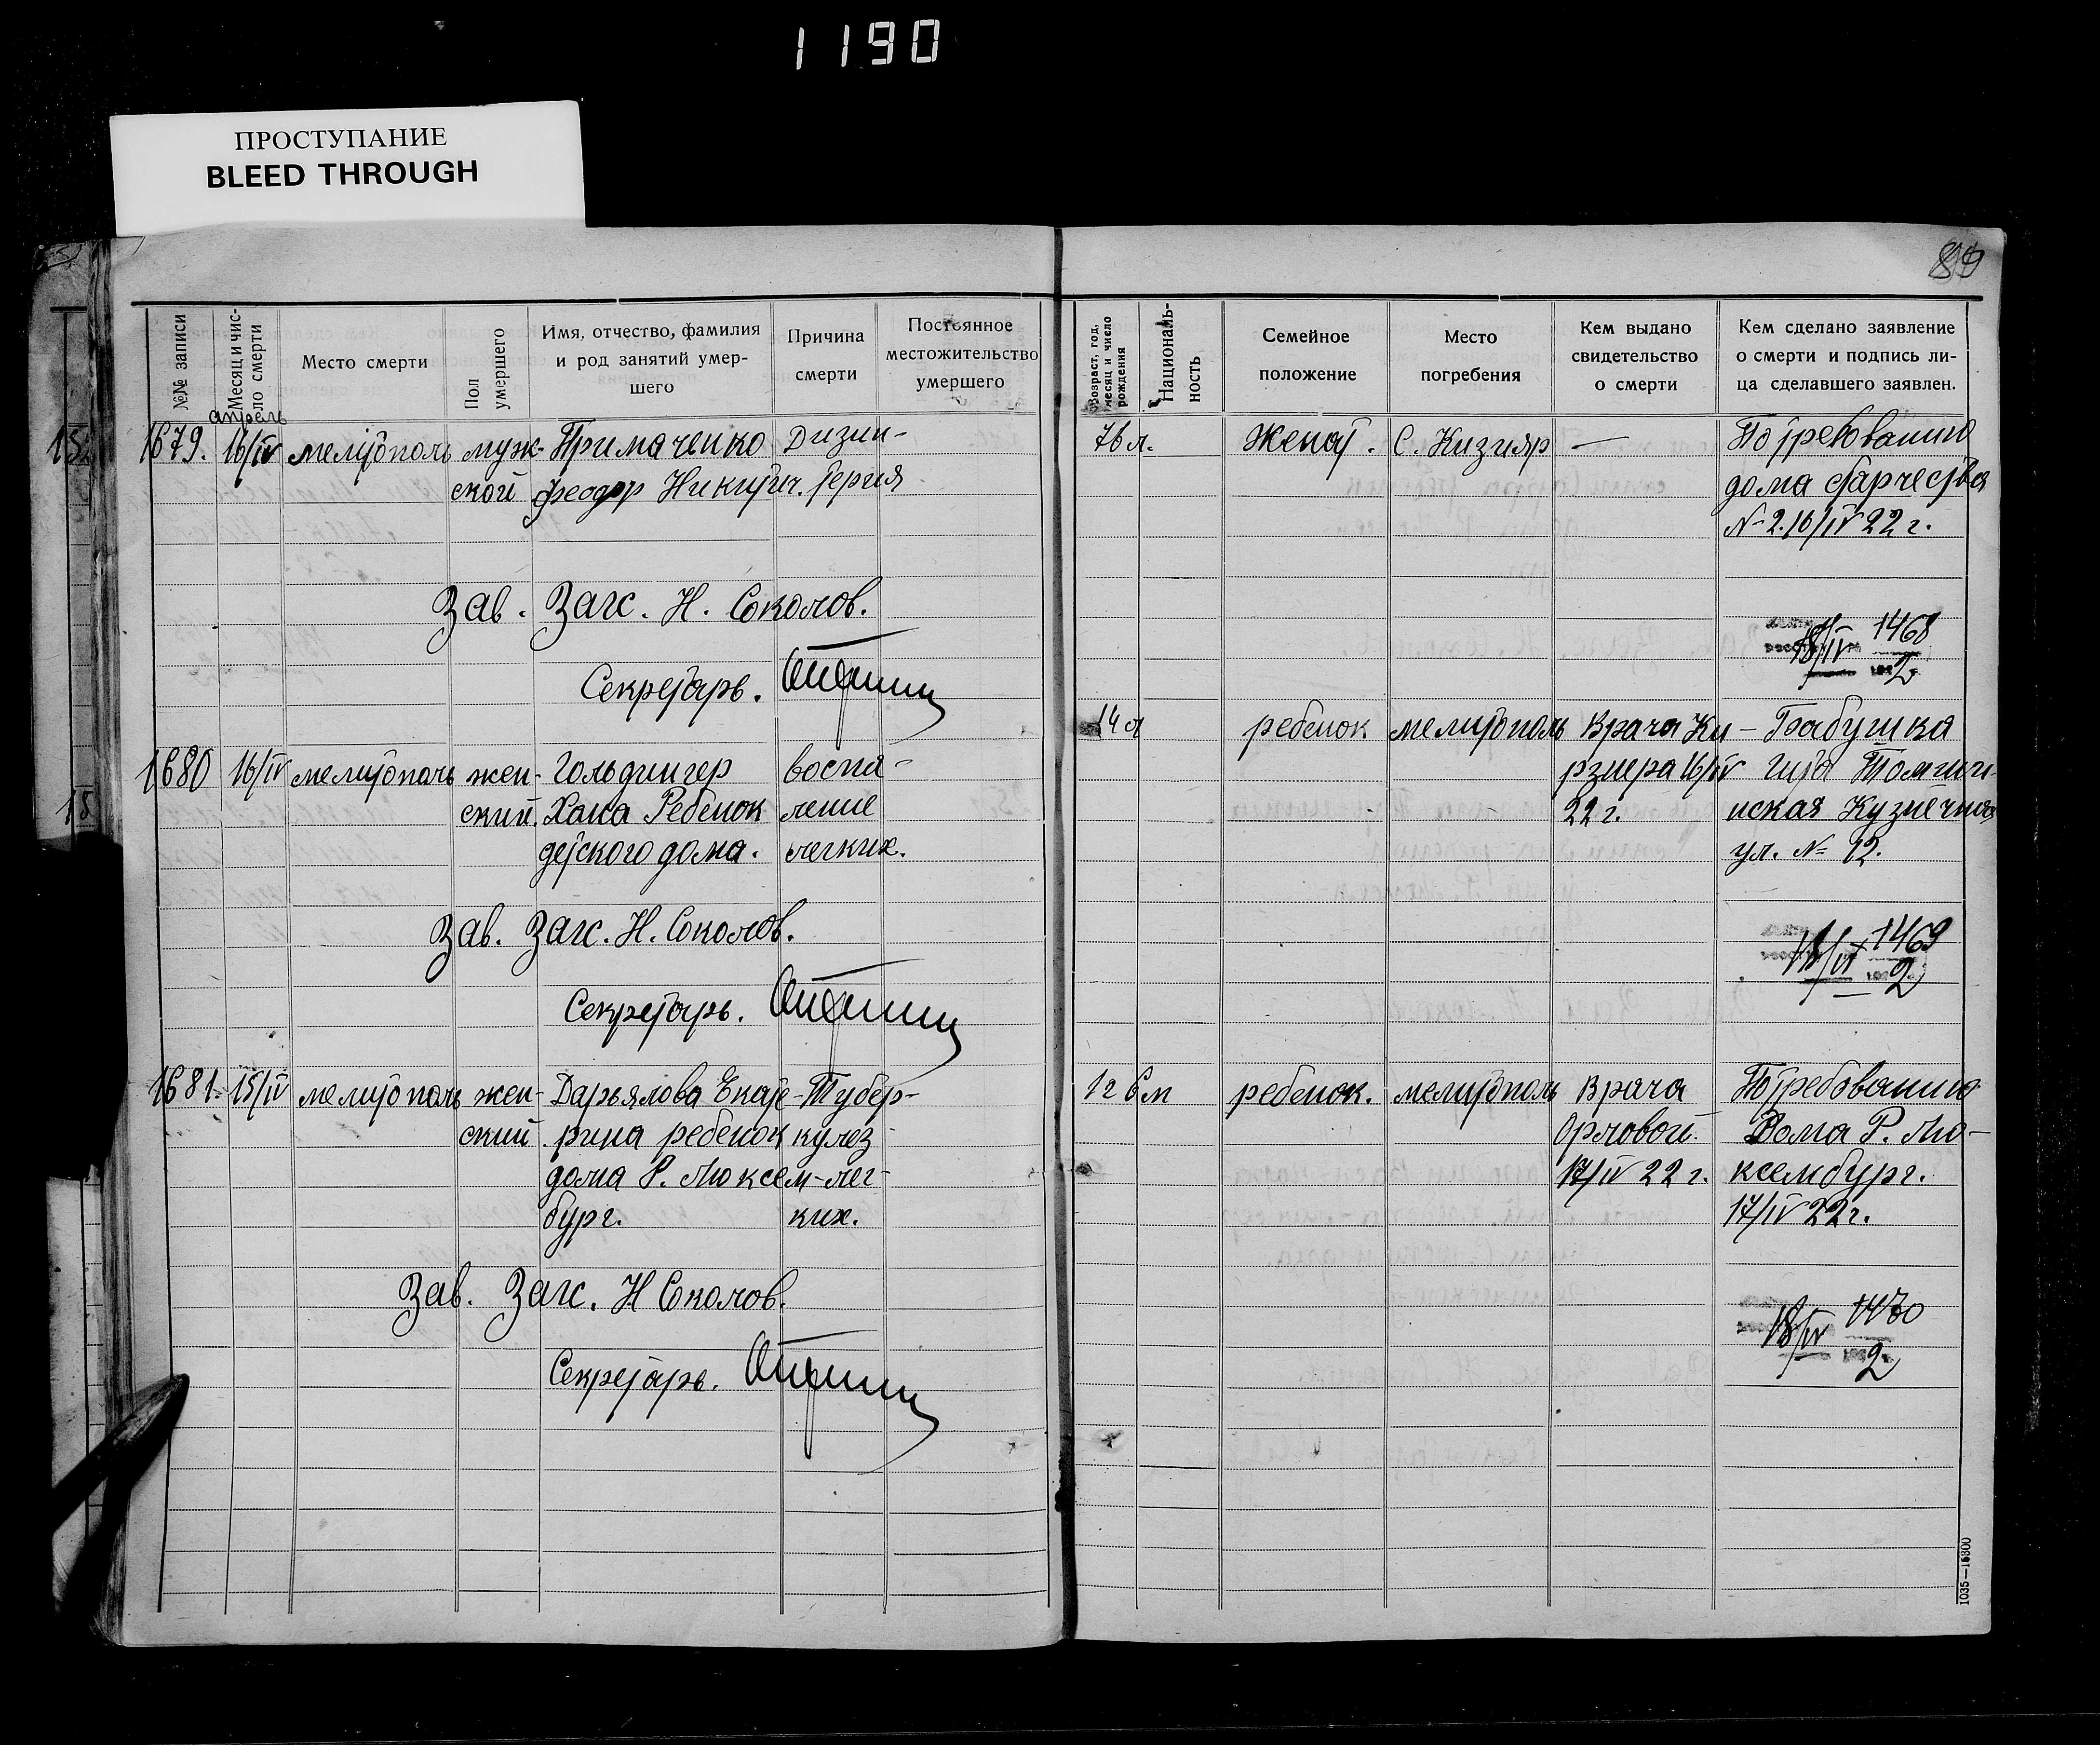 1190
ПРОСТУПАНИЕ
BLEED THROUGH
89
№№ записи
Месяц и чис-
ло смерти
Место смерти
Пол
умершего
Имя, отчество, фамилия
и род занятий умер-
шего
Причина
смерти
Постоянное
местожительство
умершего
Возраст, год,
месяц и число
рождения
Националь-
ность
Семейное
положение
Место
погребения
Кем выдано
свидетельство
о смерти
Кем сделано заявление
о смерти и подпись ли-
ца сделавшего заявлен.
апрель
1679. 16/IV мелитополь муж- Примаченко Дизин- 76 л. Женат. С. Кизияр — По требованию
ской Феодор Никитич. терия дома старчества
№ 2. 16/IV 22 г.
Зав. Загс. Н. Соколов.
18/IV 1468
2
Секретарь.
1680 16/IV мелитополь жен- Гольдингер воспа- 14 л ребенок мелитополь Врача Ки- Бабушка
ский. Хана Ребенок ление рзнера 16/IV Гита
детского дома. легких. 22 г. нская Кузнечная
ул. № 12.
Зав. Загс. Н. Соколов.
18/IV 1469
2
Секретарь.
1681. 15/IV мелитополь жен- Дарьялова Екате- Тубер- 1 г 6 м ребенок. мелитополь Врача По требованию
ский. рина ребенок кулез Орловой. Дома Р. Лю-
дома Р. Люксем- лег- 17/IV 22 г. ксембург.
бург. ких. 17/IV 22 г.
Зав. Загс. Н Соколов.
18/IV 1470
2
Секретарь.
1035—15300